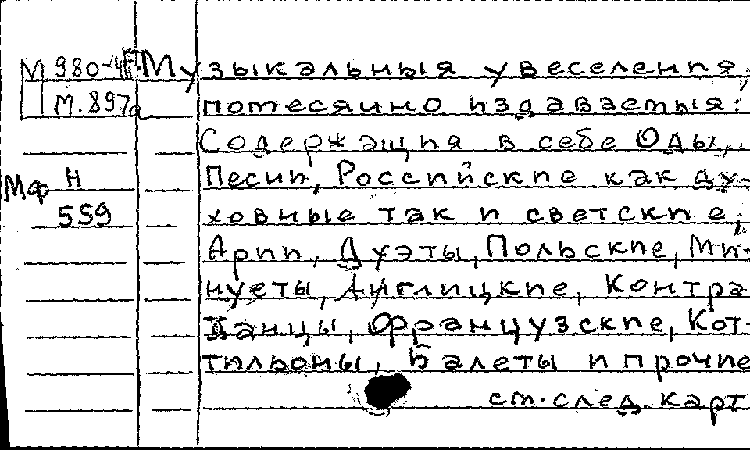 М 980-4 Музыкальныя увеселения,
М.897а помесячно издаваемыя:
Содержащия в себе Оды,
Мф Н Песни, Российские как ду-
559 ховные так и светские,
Арии, Дуэты, Польские, Ми-
нуеты, Англицкие, Контра
Данцы, Французские, Кот-
тильоны, Балеты и прочие
см. след. карт